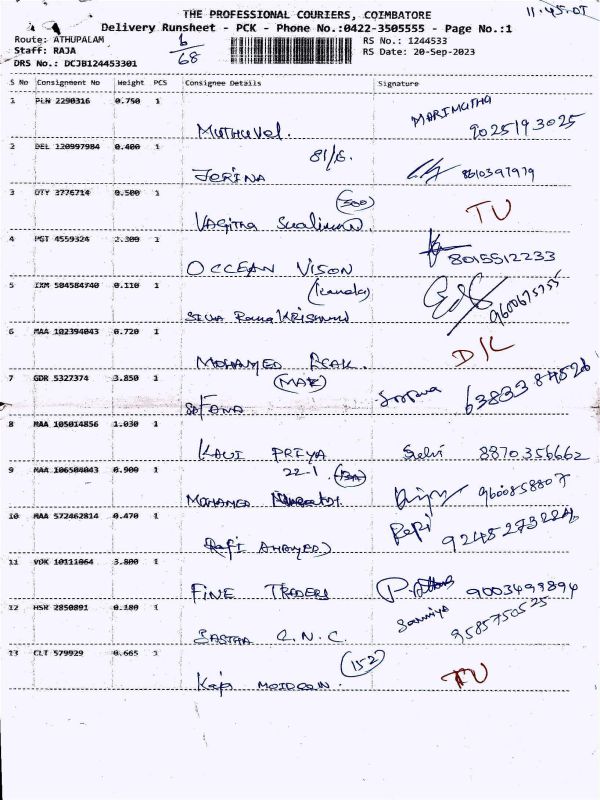 11.45.07
THE PROFESSIONAL COURIERS, COIMBATORE
Delivery Runsheet - PCK - Phone No.:0422-3505555 - Page No.:1
Route: ATHUPALAM
Staff: RAJA
DRS No.: DCJB124453301
6/68
RS No.: 1244533
RS Date: 20-Sep-2023
S No Consignment No Weight PCS Consignee Details Signature
1 PLN 2290316 0.750 1
Muthuvel. MARIMUTHA 9025193025
2 DEL 120997984 0.400 1
81/6.
JERINA 8610397979
3 OTY 3776714 0.500 1
(300)
VAGITHA TU
4 PGT 4559324 2.300 1
OCCEAN VISON 8015512233
5 IXM 504584740 0.110 1
(Kanak)
SIVA Rama KRISHNAN 9600675755
6 MAA 102394043 0.720 1
MOHAMED RSAK. D/L
7 GDR 5327374 3.850 1
(MAR)
SAFANA 6383384526
8 MAA 105014856 1.030 1
KAVI PRIYA Selvi 8870356662
9 MAA 106504043 0.900 1
22-1
MOHAMED 9600858807
10 MAA 572462814 0.470 1
Rafi AHAMED) Rafi
11 VDK 10111064 3.800 1
FINE TRADERS 9003499894
12 HSR 2850891 0.180 1
SASTHA C.N.C. Sowmiya 9585750525
13 CLT 579929 0.665 1
(152)
Kaja MOIDEEN. TU